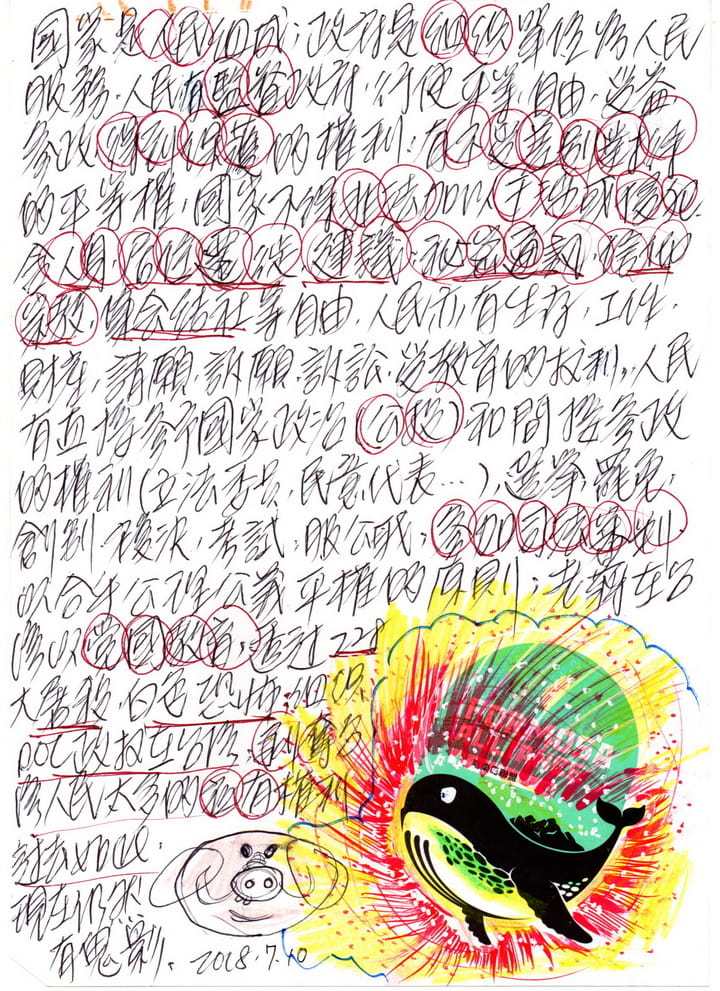 國家是人民組成;政府是組織單位為人民
服務,人民有監督政府,行使平等,自由,選舉
參政 保障的權利;有不
的平等權,國家不得非法加以干涉或侵犯.
含人身.居住遷徙.建議.秘密通訊.信仰
宗教.集會結社等自由.人民亦有生存.工作.
財產.請願.訴願.訴訟.受教育的權利.人民
有直接參予國家政治(公投)和間接參政
的權利(立法委員.民意代表…).選舉.罷免.
創制.複決.考試.服公職.參加司法審判.
以合乎公理公義平權的原則;老蔣在台
灣以黨國教育,透过228
大屠殺,白色恐怖,組織
ROC政权在台灣,剝奪台
灣人民太多的 有權利
過去如此.
現在仍然
有鬼 2018.7.10